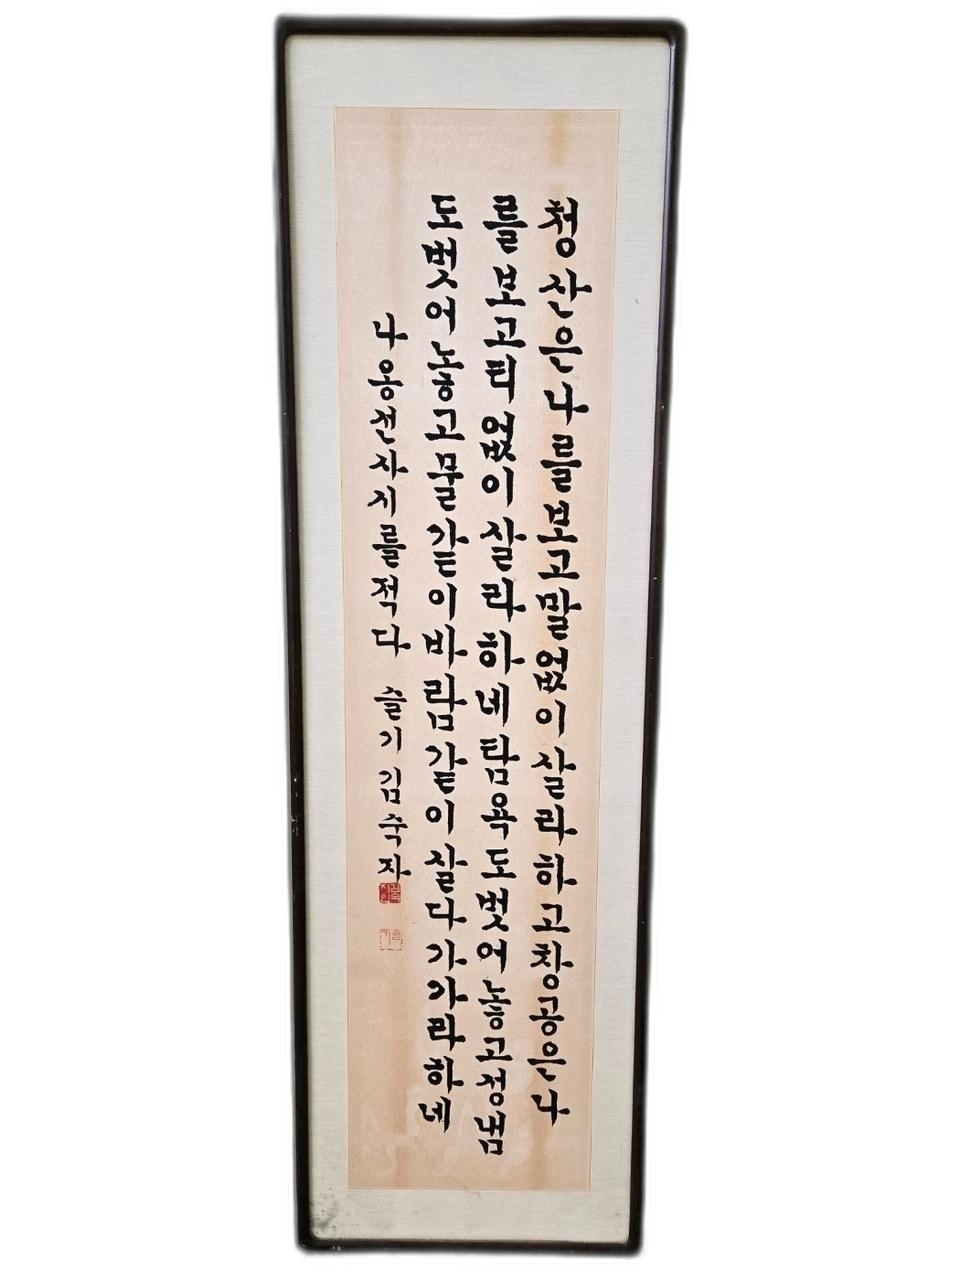 청산은나를보고말없이살라하고창공은나
를보고티없이살라하네탐욕도벗어놓고성냄
도벗어놓고물같이바람같이살다가가라하네
나옹선사시를적다 슬기 김숙자